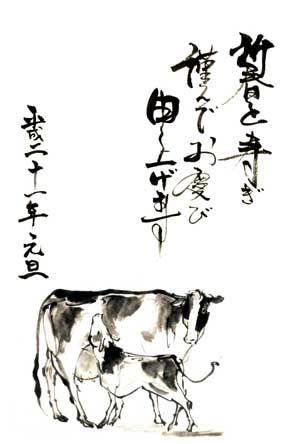 新春を寿ぎ
謹んでお慶び
申し上げます
平成二十一年 元旦